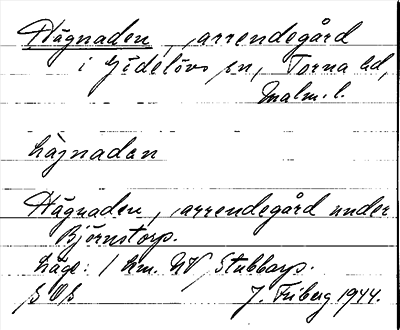 Hägnaden, arrendegård
i Gödelövs sn, Torna hd,
Malm. l.
häjnadan
Hägnaden, arrendegård under
Björnstorp.
Läge: 1 km. NV Stubbarp.
SOS J. Friberg 1944.